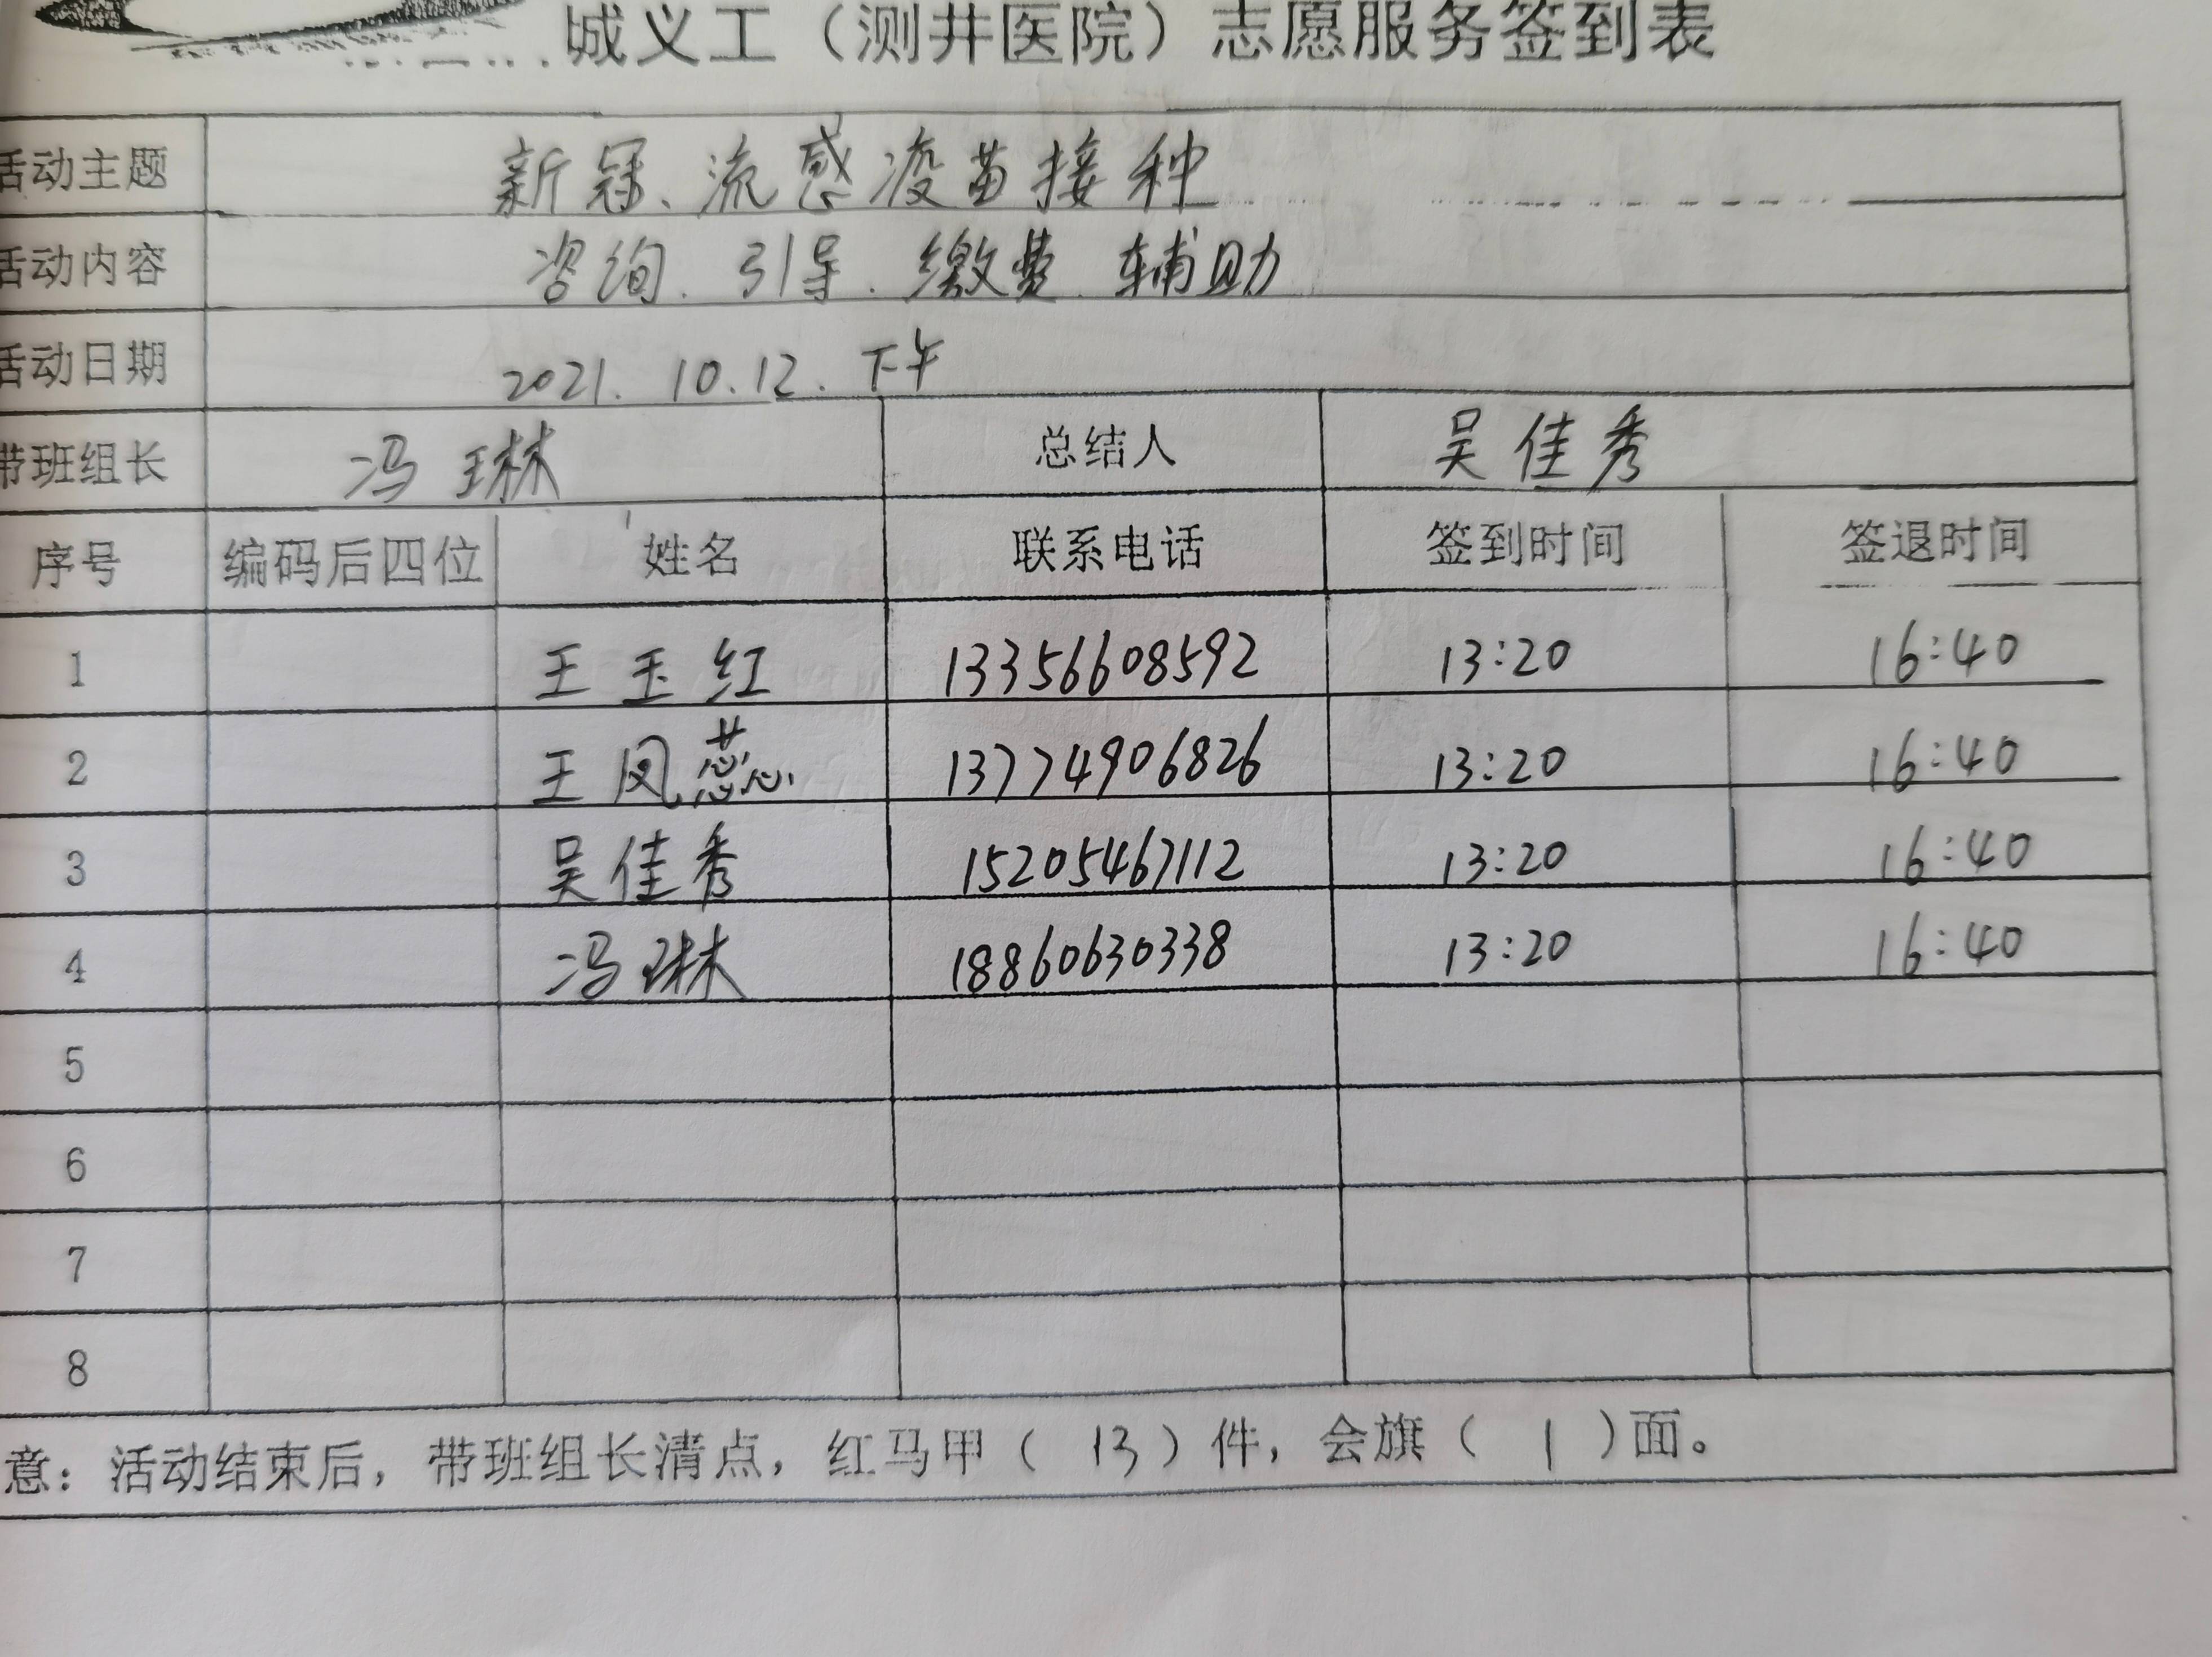 城义工（测井医院）志愿服务签到表
活动主题 新冠、流感疫苗接种
活动内容 咨询.引导.缴费.辅助
活动日期 2021.10.12.下午
带班组长 冯琳 总结人 吴佳秀
序号 编码后四位 姓名 联系电话 签到时间 签退时间
1 王玉红 13356608592 13:20 16:40
2 王凤蕊 13774906826 13:20 16:40
3 吴佳秀 15205467112 13:20 16:40
4 冯琳 18860630338 13:20 16:40
5
6
7
8
意：活动结束后，带班组长清点，红马甲（13）件，会旗（1）面。